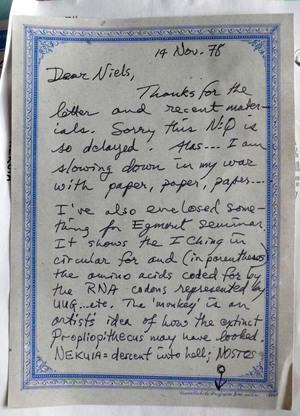 14 Nov. 78
Dear Niels,
Thanks for the
letter and recent mater-
ials. Sorry this N:O is
so delayed. Alas... I am
slowing down in my war
with paper, paper, paper...
I've also enclosed some-
thing for Egmont seminar.
It shows the I Ching in
circular for and (in parentheses)
the amino acids coded for by
the RNA codons represented by
UUG...etc. The 'monkey' is an
artists' idea of how the extinct
Propliopithecus may have looked.
NEKUIA = descent into hell; NOSTOS